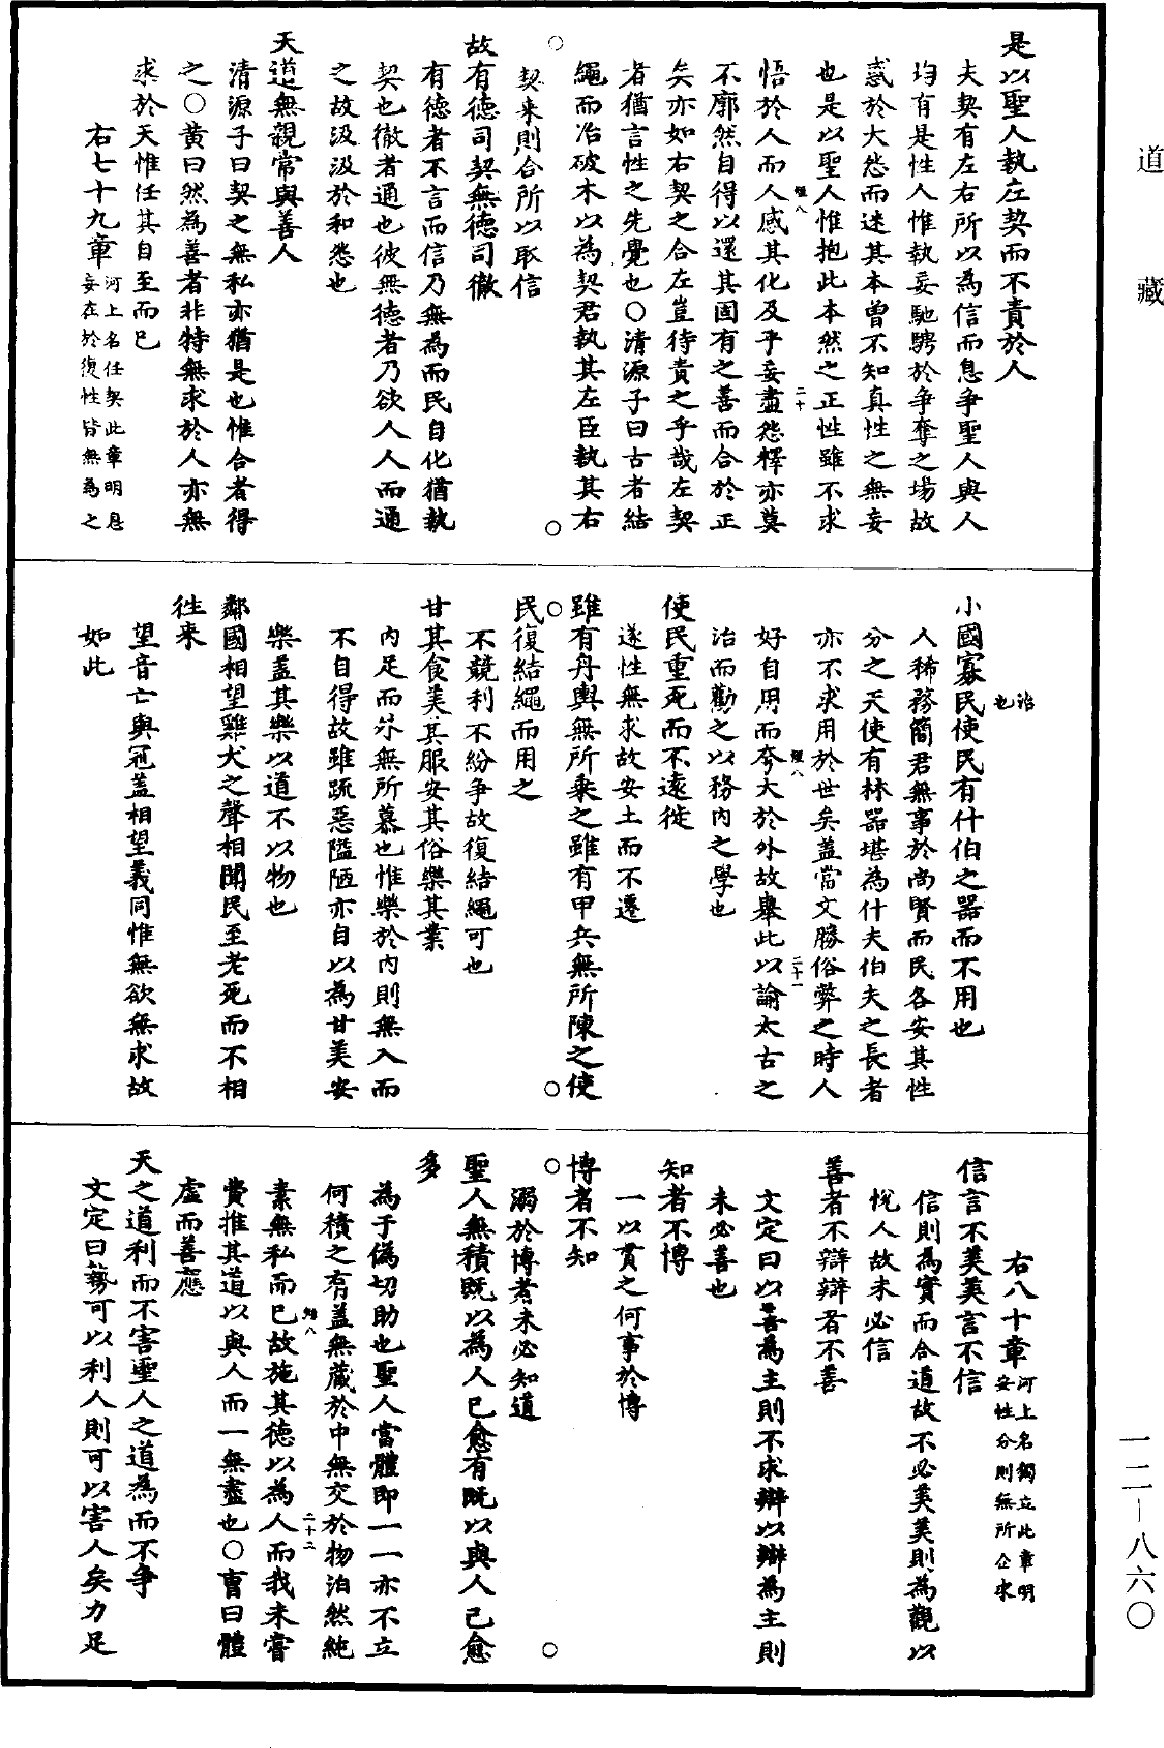 道藏
是以聖人執左契而不責於人
夫契有左右所以為信而息爭聖人與人
均有是性人惟執妄馳騁於爭奪之場故
惑於大怨而迷其本曾不知真性之無妄
也是以聖人惟抱此本然之正性雖不求
悟於人而人感其化及乎妄盡怨釋亦莫
不廓然自得以還其固有之善而合於正
矣亦如右契之合左豈待責之乎哉左契
者猶言性之先覺也○清源子曰古者結
繩而治破木以為契君執其左臣執其右
契来則合所以取信
故有德司契無德司徹
有德者不言而信乃無為而民自化猶執
契也徹者通也彼無德者乃欲人人而通
之故汲汲於和怨也
天道無親常與善人
清源子曰契之無私亦猶是也惟合者得
之○黃曰然為善者非特無求於人亦無
求於天惟任其自至而已
右七十九章河上名任契此章明息
妄在於復性皆無為之
治
也
小國寡民使民有什伯之器而不用也
人稀務簡君無事於尚賢而民各安其性
分之天使有林器堪為什夫伯夫之長者
亦不求用於世矣蓋當文勝俗弊之時人
好自用而夸大於外故舉此以諭太古之
治而勸之以務內之學也
使民重死而不遠徙
遂性無求故安土而不遷
雖有舟輿無所乘之雖有甲兵無所陳之使
民復結繩而用之
不競利不紛爭故復結繩可也
甘其食美其服安其俗樂其業
內足而外無所慕也惟樂於內則無入而
不自得故雖䟽惡隘陋亦自以為甘美安
樂蓋其樂以道不以物也
鄰國相望雞犬之聲相聞民至老死而不相
徃來
望音亡與冠蓋相望義同惟無欲無求故
如此
右八十章河上名獨立此章明
安性分則無所企求
信言不美美言不信
信則為實而合道故不必美美則為觀以
悅人故未必信
善者不辯辯者不善
文定曰以善為主則不求辯以辯為主則
未必善也
知者不博
一以貫之何事於博
博者不知
溺於博者未必知道
聖人無積既以為人己愈有既以與人己愈
多
為于偽切助也聖人當體即一一亦不立
何積之有蓋無藏於中無交於物泊然純
素無私而已故施其德以為人而我未嘗
費推其道以與人而一無盡也○曹曰體
虛而善應
天之道利而不害聖人之道為而不爭
文定曰勢可以利人則可以害人矣力足
一二—八六〇